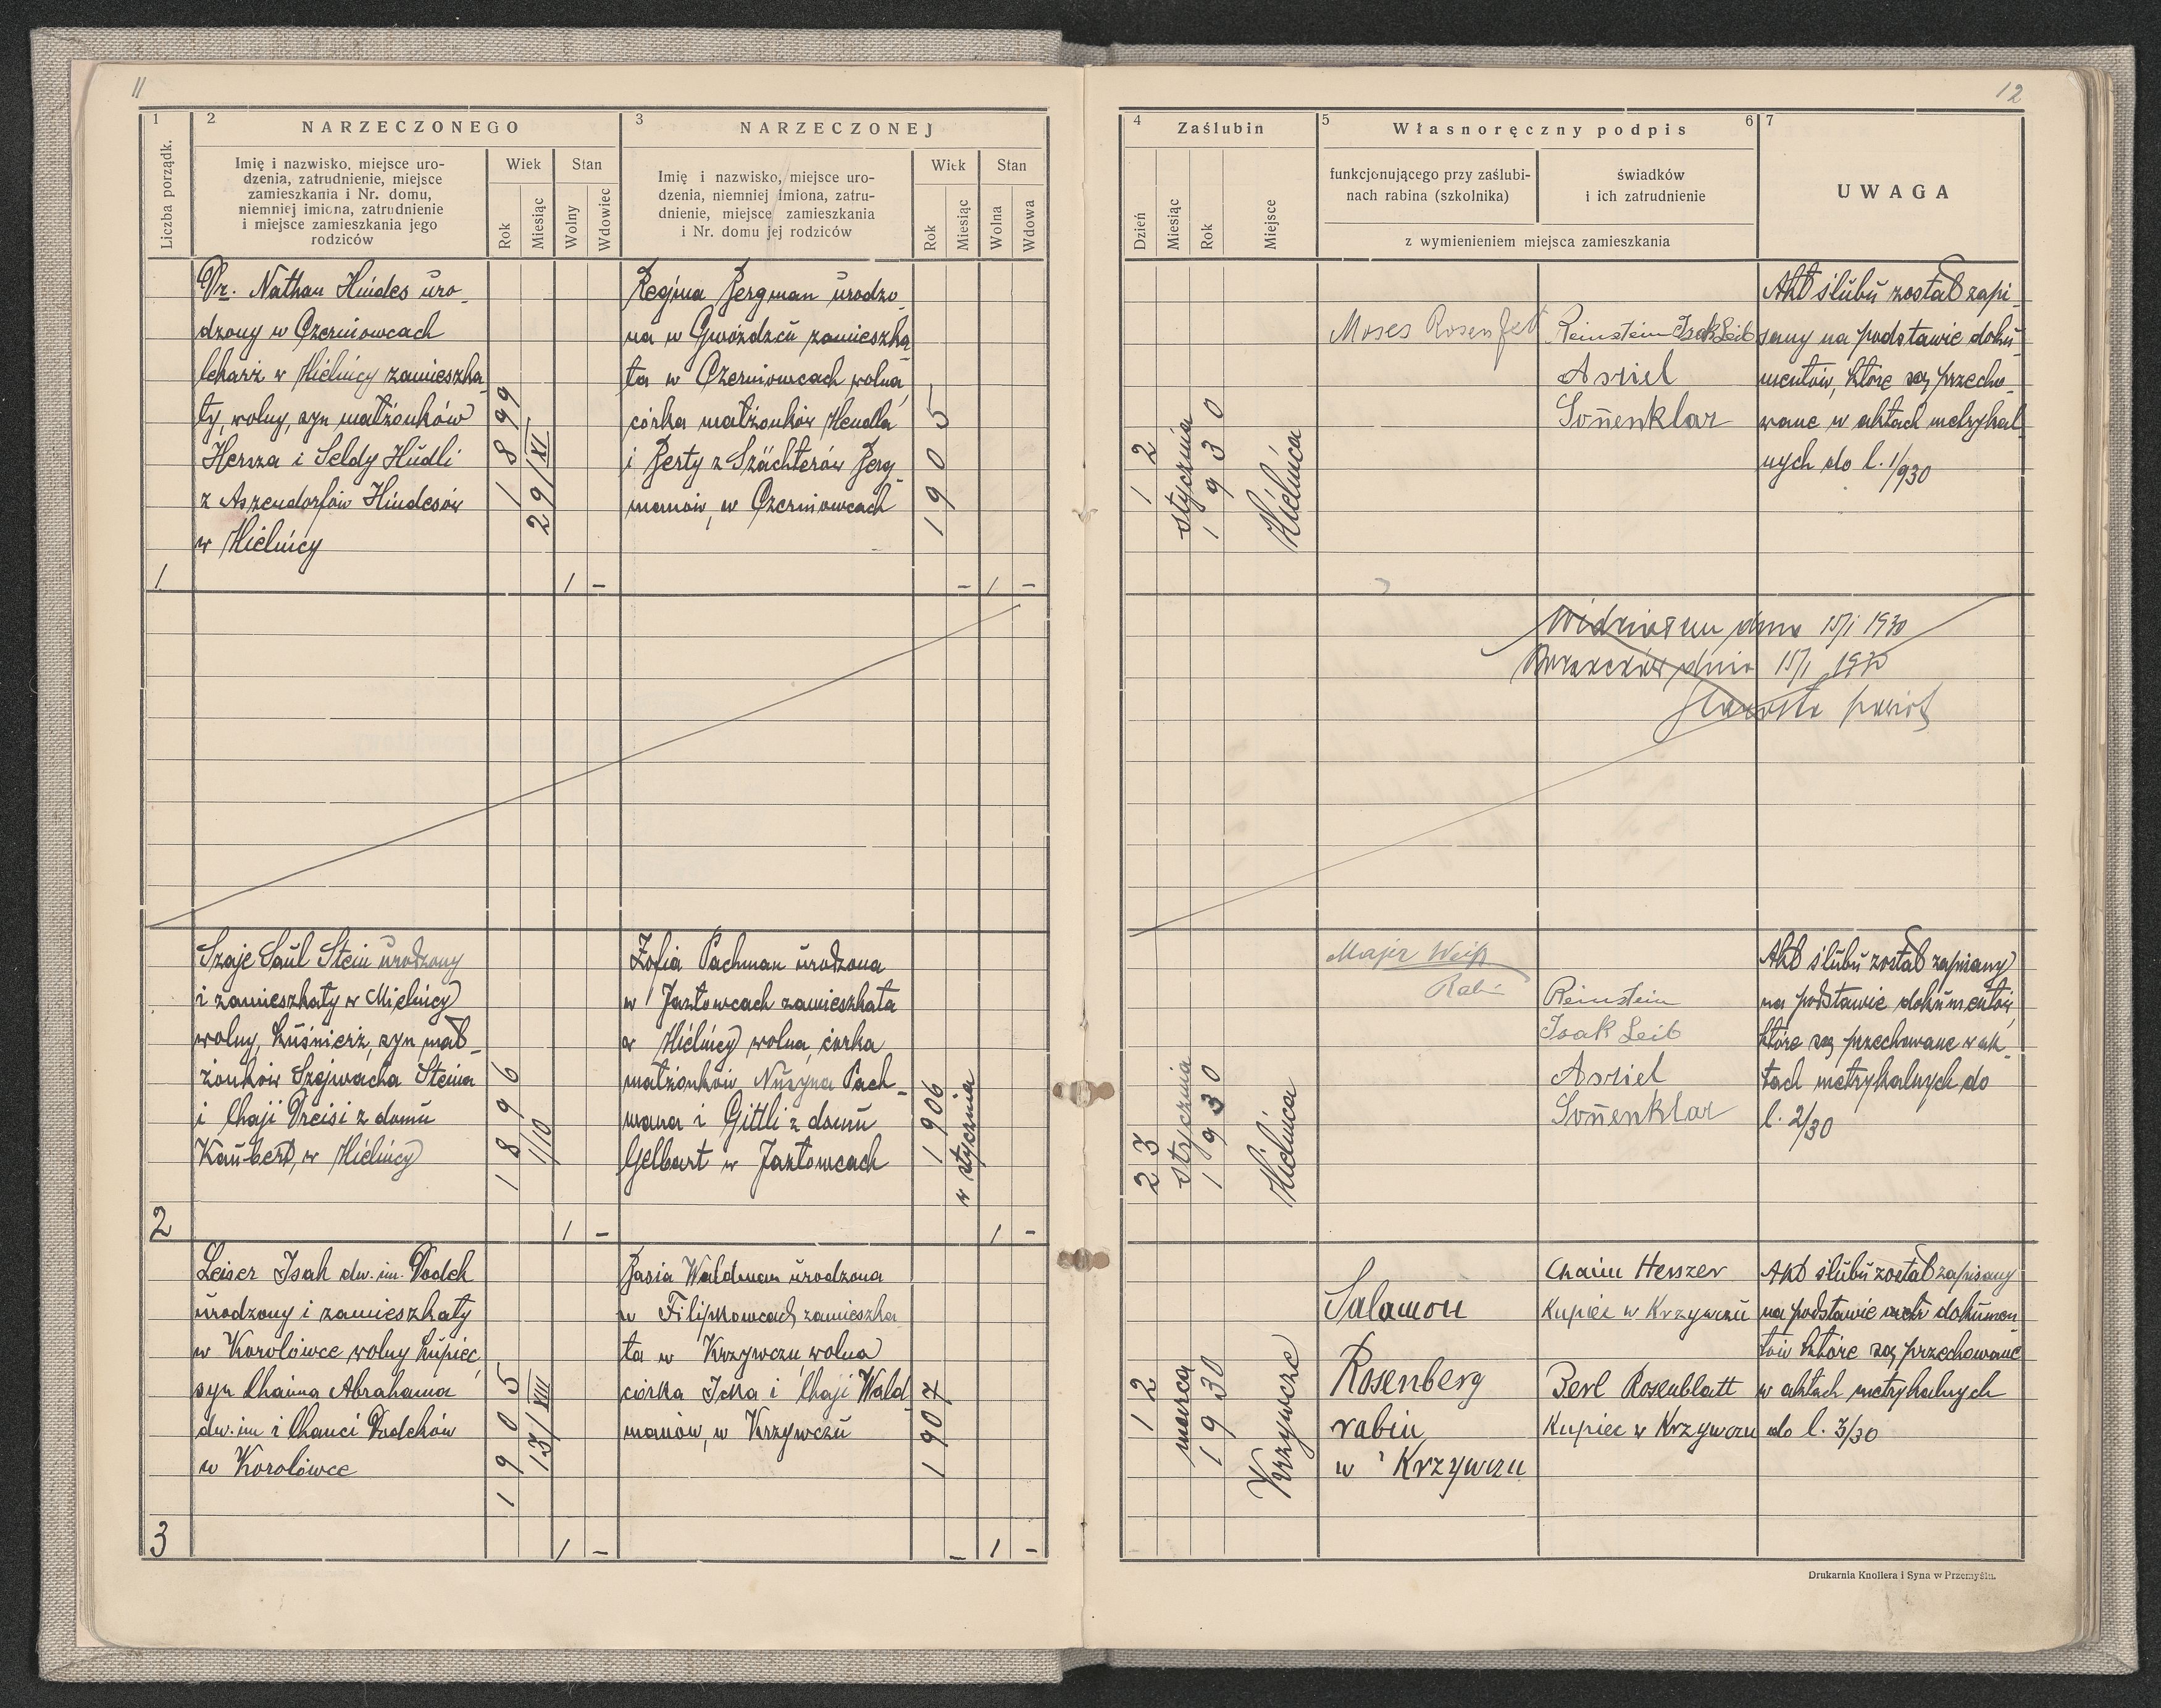 11
1
2
NARZECZONEGO
3
NARZECZONEJ
Liczba porządk.
Imię i nazwisko, miejsce uro-
dzenia, zatrudnienie, miejsce
zamieszkania i Nr. domu,
niemniej imiona, zatrudnienie
i miejsce zamieszkania jego
rodziców
Wiek
Stan
Rok
Miesiąc
Wolny
Wdowiec
Imię i nazwisko, miejsce uro-
dzenia, niemniej imiona, zatru-
dnienie, miejsce zamieszkania
i Nr. domu jej rodziców
Wiek
Stan
Rok
Miesiąc
Wolna
Wdowa
Dr. Nathan Hindes uro-
dzony w Czerniowcach
lekarz w Mielnicy zamieszka-
ły, wolny, syn małżonków
Hersza i Seldy Hudli
z Aszendorfów Hindesów
w Mielnicy
1899
29/XI
1 -
Regina Bergman urodzo-
na w Gwóźdźcu zamieszka-
ła w Czerniowcach, wolna,
córka małżonków Mendla
i Berty z Szächterów Berg-
manów, w Czerniowcach
1905
- 1 -
1.
Szaje Saul Stein urodzony
i zamieszkały w Mielnicy
wolny, kuśnierz, syn mał-
żonków Szejwacha Steina
i Chaji Dreisi z domu
w Mielnicy
1896
1/10
1 -
Zofia Pachman urodzona
w Jazłowcach zamieszkała
w Mielnicy wolna, córka
małżonków Nusyna Pach-
mana i Gittli z domu
Gelbart w Jazłowcach
1906
w styczniu
1 -
2
Leiser Isak dw. im. Dodek
urodzony i zamieszkały
w Korolówce wolny kupiec,
syn Chaima Abrahama
dw. im i Chanci Dodeków
w Korolówce
1905
13/VIII
1 -
Basia Waldman urodzona
w Filipkowcach, zamieszka-
ła w Krzywczu, wolna
córka Icka i Chaji Wald-
manów, w Krzywczu
1907
- 1 -
3
12
4
Zaślubin
5
Własnoręczny podpis
6
7
Dzień
Miesiąc
Rok
Miejsce
funkcjonującego przy zaślubi-
nach rabina (szkolnika)
świadków
i ich zatrudnienie
z wymienieniem miejsca zamieszkania
UWAGA
12
stycznia
1930
Mielnica
Moses Rosenfeld
Reinstein Isak Leib
Asriel
Soñenklar
Akt ślubu został zapi-
sany na podstawie doku-
mentów, które są przecho-
wane w aktach metrykal-
nych do l. 1/930
Widziałem dnia 15/1 1930
Borszczów dnia 15/1 1930
Starosta powiat
23
stycznia
1930
Mielnica
Majer Weiß
Rabi
Reinstein
Isak Leib
Asriel
Soñenklar
Akt ślubu został zapisany
na podstawie dokumentów,
które są przechowane w ak-
tach metrykalnych do
l. 2/30
12
marca
1930
Krzywcze
Salamon
Rosenberg
rabin
w Krzywczu
Chaim Herszer
Kupiec w Krzywczu
Berl Rosenblatt
Kupiec w Krzywczu
Akt ślubu został zapisany
na podstawie dokumen-
tów które są przechowane
w aktach metrykalnych
do l. 3/30
Drukarnia Knollera i Syna w Przemyślu.